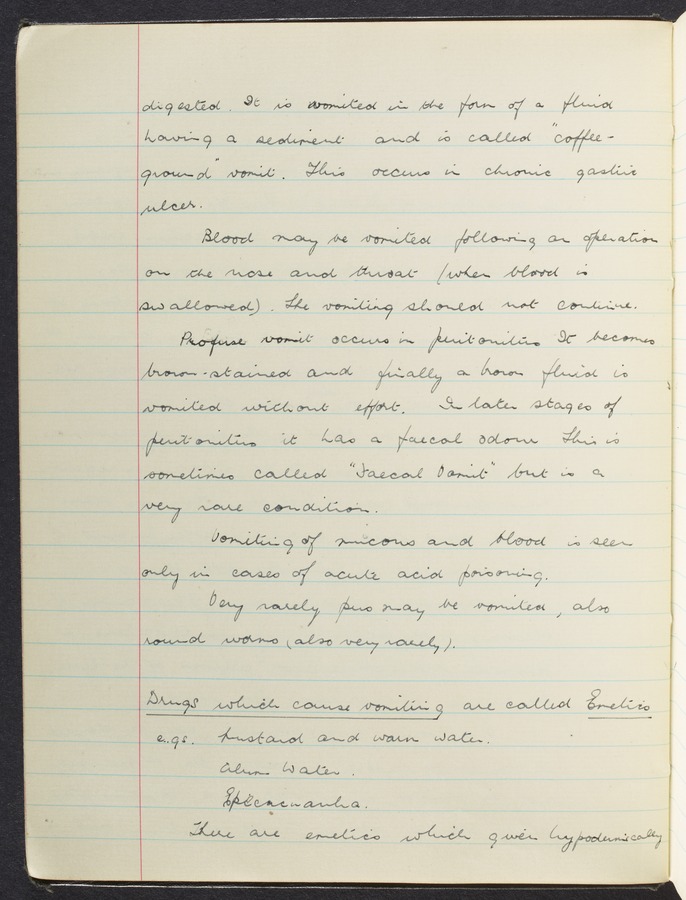 digested. It is vomited in the form of a fluid
having a sediment and is called "coffee-
ground" vomit. This occurs in chronic gastric
ulcer.
Blood may be vomited following an operation
on the nose and throat (when blood is
swallowed). The vomiting should not continue.
Profuse vomit occurs in peritonitis It becomes
brown-stained and finally a brown fluid is
vomited without effort. In later stages of
peritonitis it has a faecal odour This is
sometimes called "Faecal Vomit" but is a
very rare condition.
Vomiting of mucous and blood is seen
only in cases of acute acid poisoning.
Very rarely pus may be vomited, also
round worms (also very rarely).
Drugs which cause vomiting are called Emetics
e.gs. Mustard and warm water.
Alum Water.
There are emetics which given hypodermically